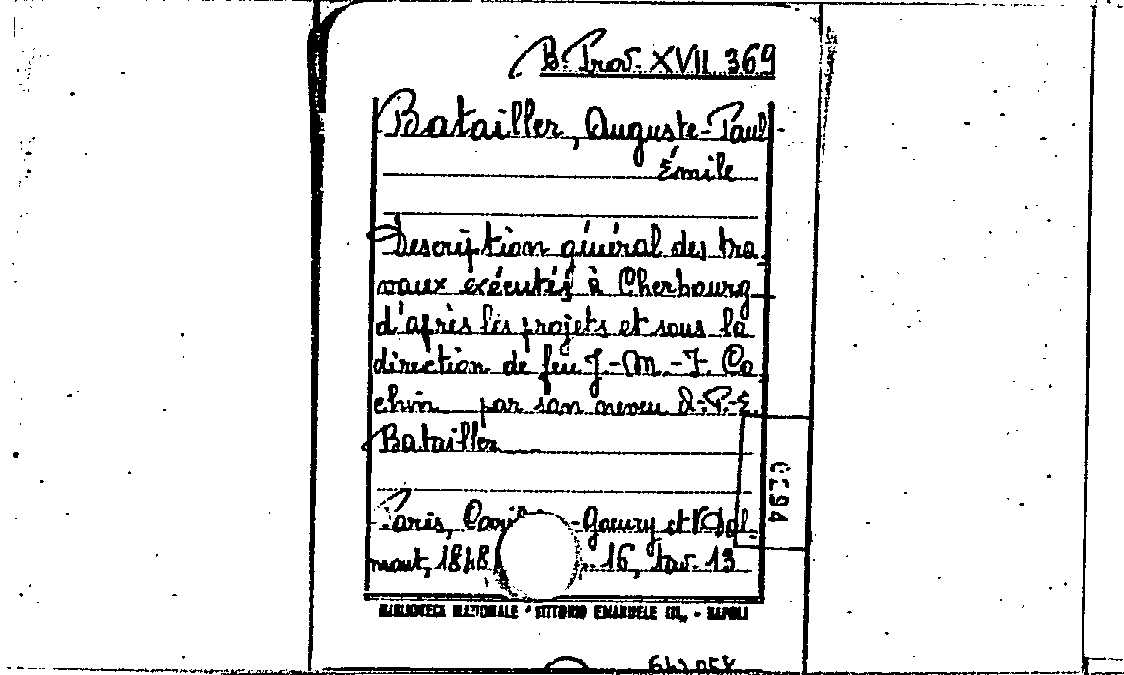 B. Prov. XVII 369
Batailler, Auguste-Paul
Émile
Description général des tra
vaux exécutés à Cherbourg
d'après les projets et sous la
direction de feu J.-M.-F. Ca
chin par son neveu A.-P.-E.
Batailler
Paris, -Goeury et V. Dal
mont, 1848 16, tav. 13
BIBLIOTECA NAZIONALE "VITTORIO EMANUELE III" - NAPOLI